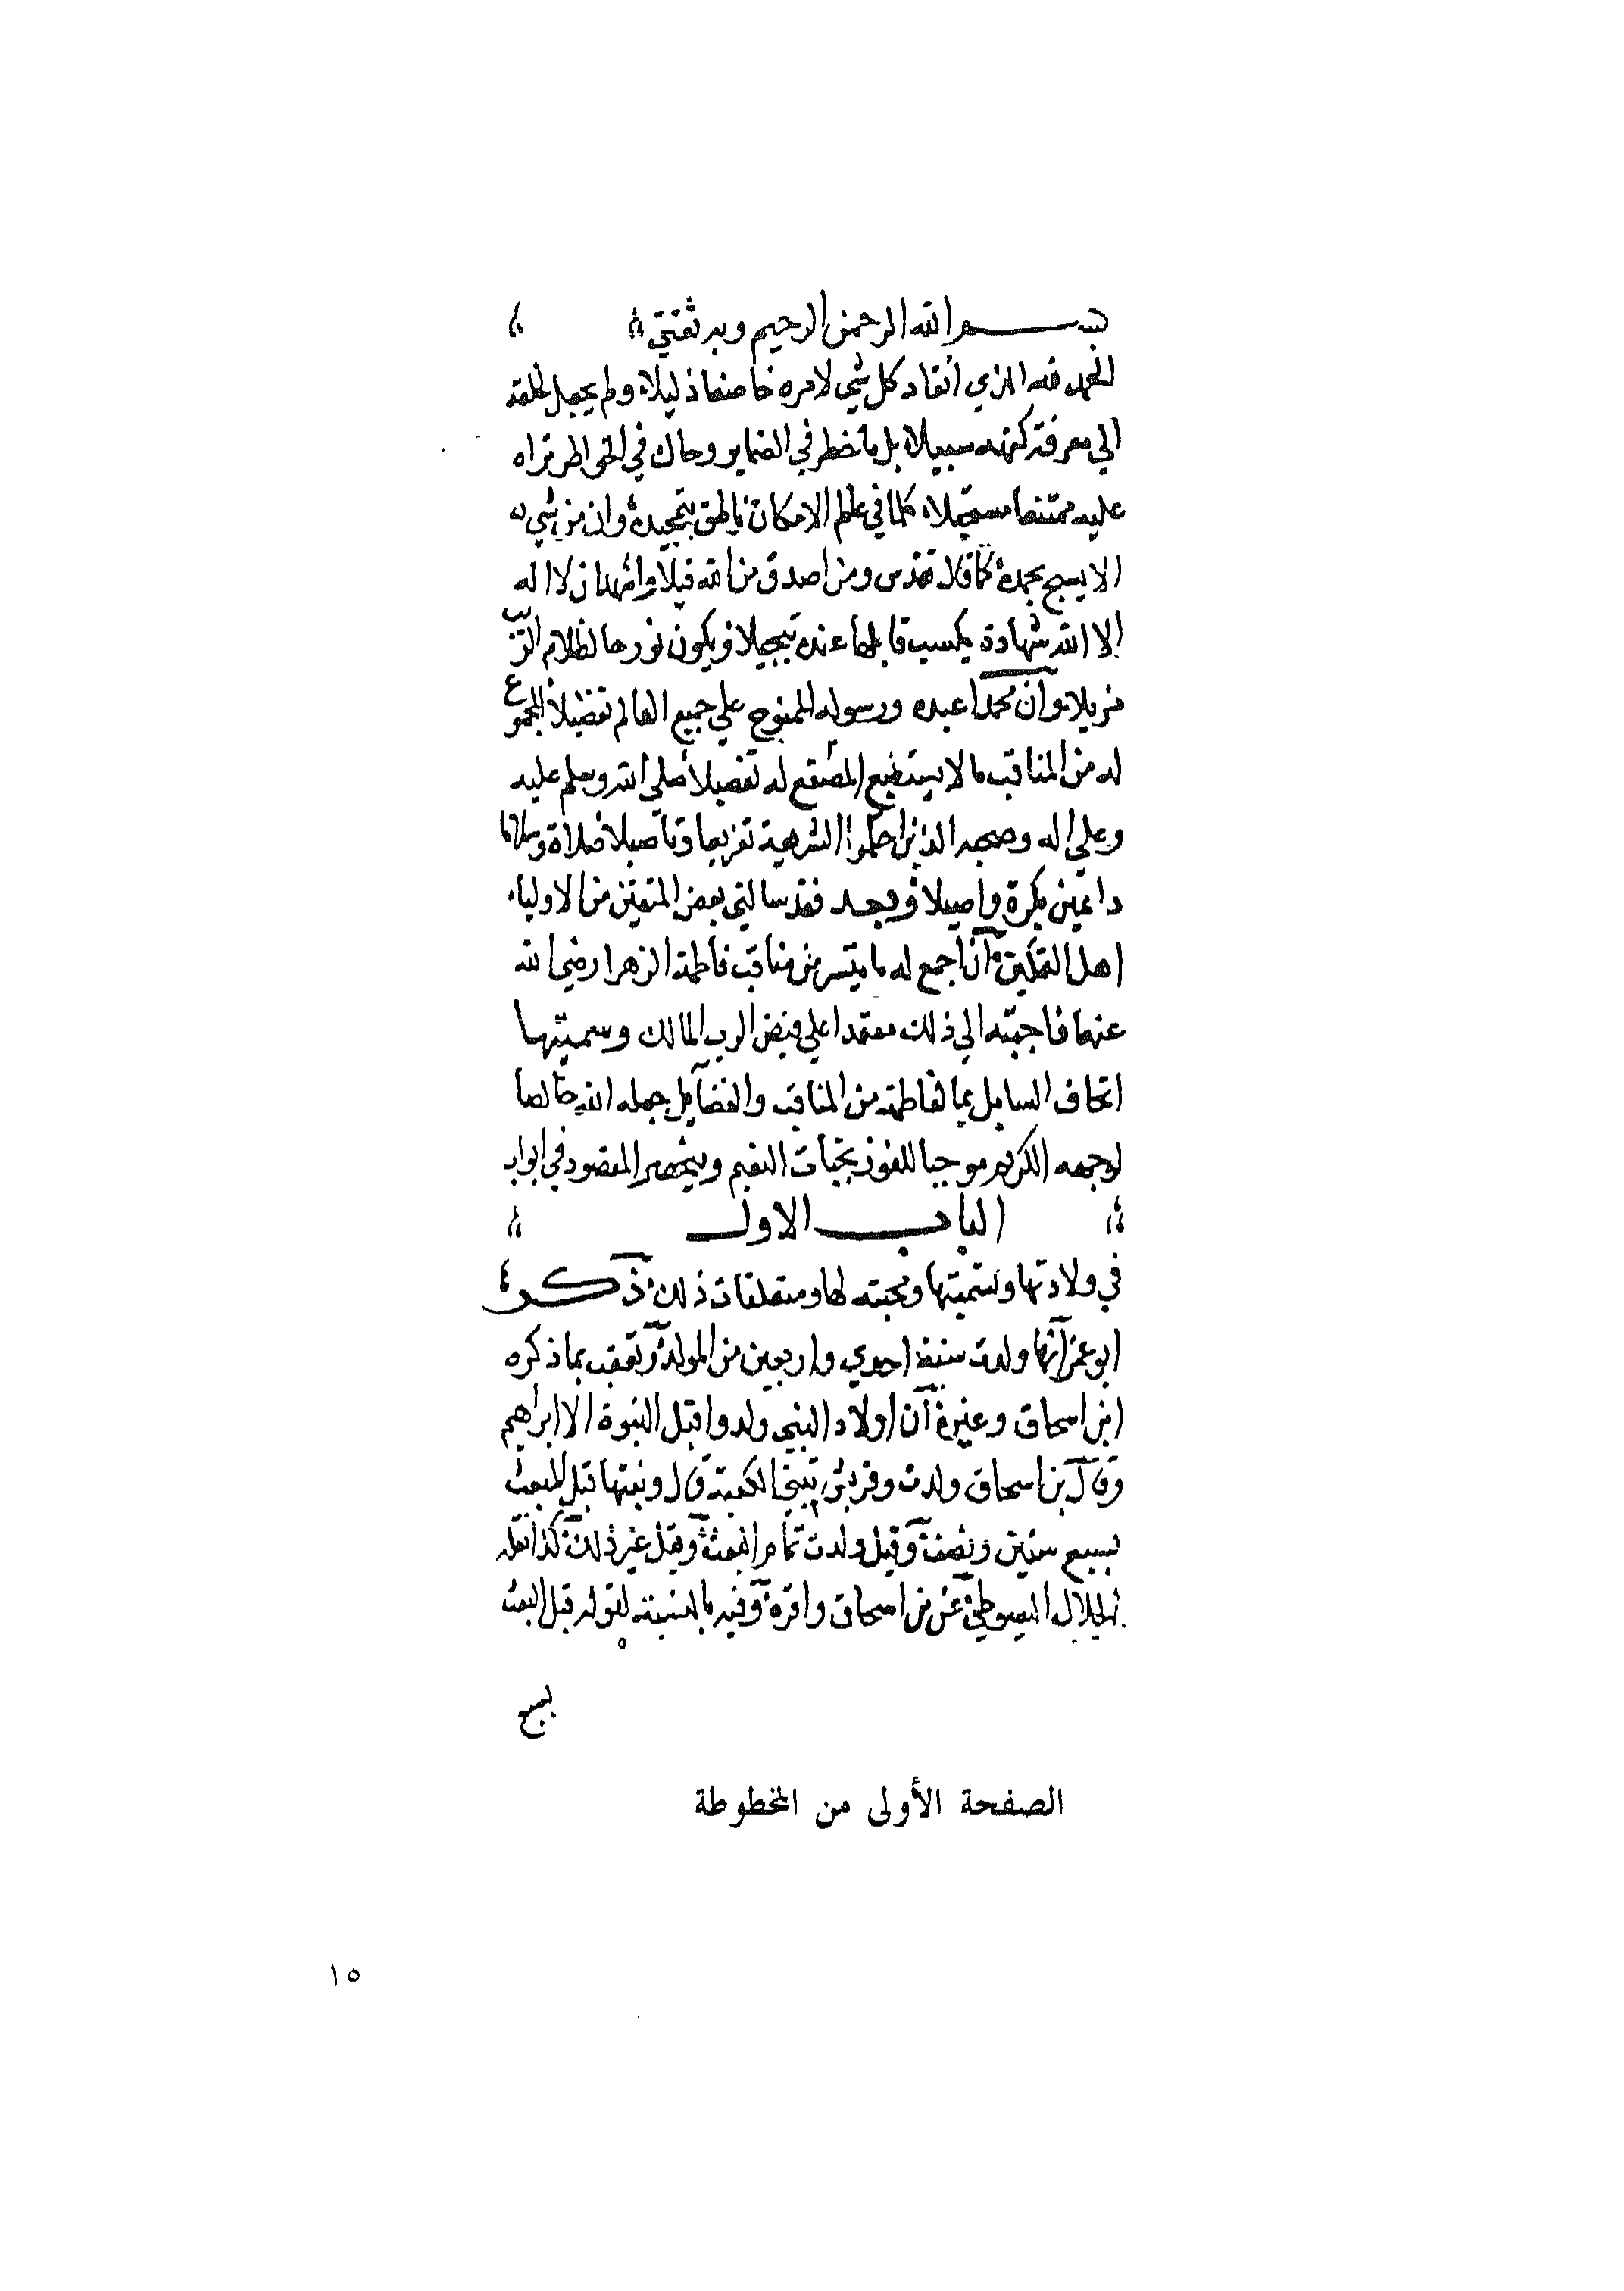 بسم الله الرحمن الرحيم وبه ثقتي
الحمد لله الذي انقاد كل شي لامره خاضعا ذليلا، ولم يجعل لخلقه
الي معرفة كنهه سبيلا، بل ما خطر في الضماير وحاك في الخواطر تراه
عليه ممتنعا مستحيلا، كلما في عالم الامكان ناطق بتمجيده، وان من شي
الا يسبح بحمده كما قال تقدس ومن اصدق من الله قيلا، واشهد ان لا اله
الا الله شهادة يكسب قايلها عنده تبجيلا، ويكون نورها لظلام الريب
مزيلا، وان محمدا عبده ورسوله الممنوح علي جميع العالم تفضيلا، المجموع
له من المناقب ما لا يستطيع المصقع له تفصيلا صلي الله وسلم عليه
وعلي اله وصحبه الذين احكموا الشريعة تفريعا وتاصيلا، صلاة وسلاما
دائمين بكرة واصيلا، وبعد فقد سالني بعض المتقين من الاولياء
اهل التمكين، أن اجمع له ما تيسر من مناقب فاطمة الزهرا رضي الله
عنها فاجبته الي ذلك معتمدا علي فيض الرب المالك وسميتها
اتحاف السايل بما لفاطمة من المناقب والفضآيل جعله الله خالصا
لوجهه الكريم موجبا للفوز بجنات النعيم وينحصر المقصود في ابواب
الباب الاول
في ولادتها وتسميتها ومحبته لها ومتعلقات ذلك، ذكر
ابو عمر أنها ولدت سنة احدي واربعين من المولد، وتعقب بما ذكره
ابن اسحاق وغيره أن اولاد النبي ولدوا قبل النبوة الا ابراهيم
وقال بن اسحاق ولدت وقريش تبني الكعبة قال وبنتها قبل المبعث
بسبع سنين ونصف، وقيل ولدت عام المبعث، وقيل غير ذلك، كذا نقله
الجلال السيوطي عن بن اسحاق واقره، وفيه ما لقوله قبل البعث
بسبع
الصفحة الأولى من المخطوطة
١٥